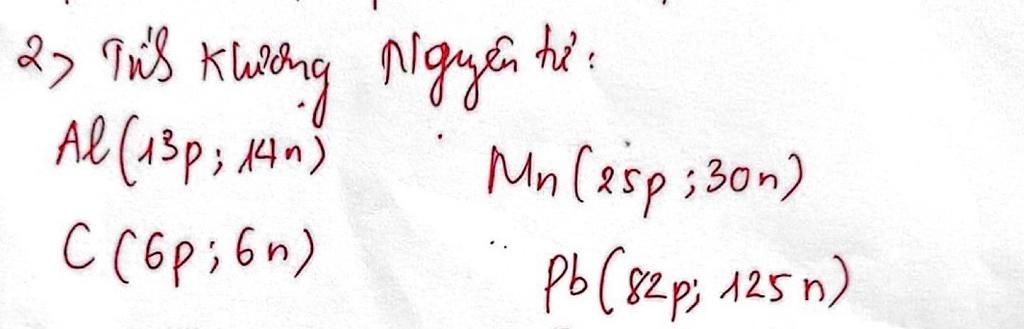 2> Tính Khlượng Nguyên tử:
Al (13p; 14n)
Mn (25p; 30n)
C (6p; 6n)
Pb (82p; 125n)